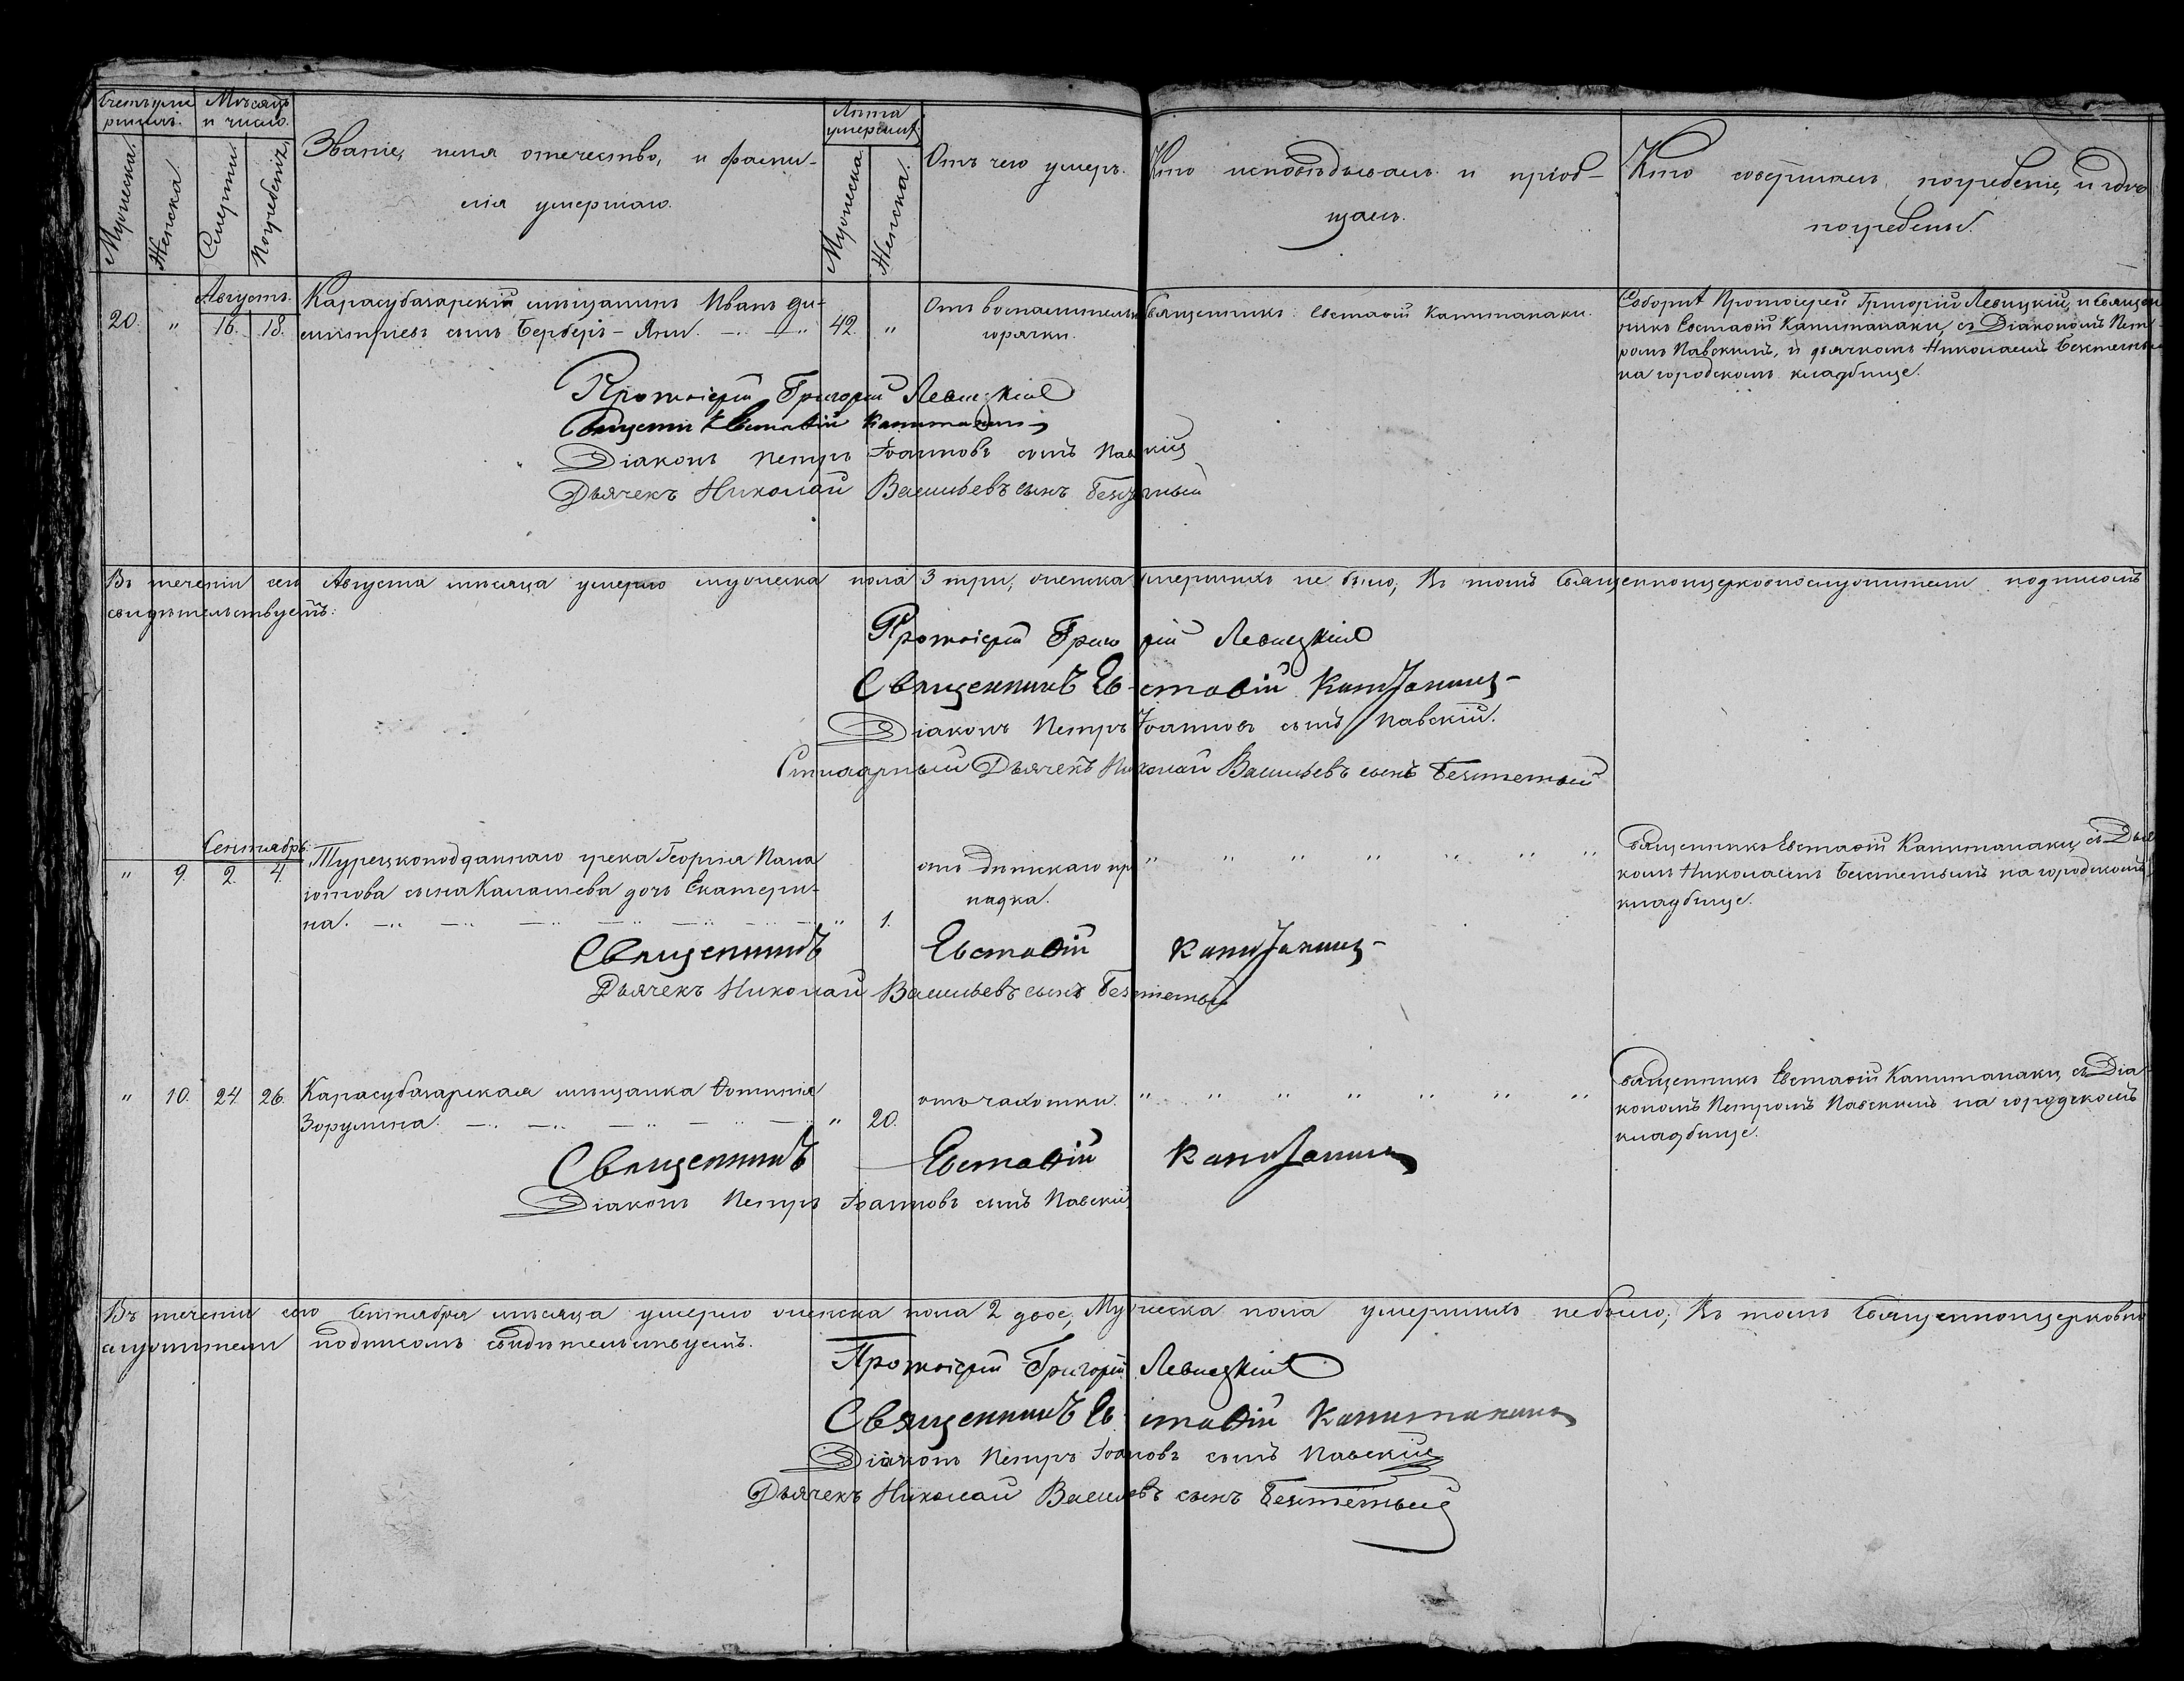 Счетъ умершихъ.
Мѣсяцъ и число.
Званіе, имя отечество, и фамилія умершаго.
Лѣта умершаго.
Отъ чего умеръ.
Кто исповѣдывалъ и пріобщалъ.
Кто совершалъ погребеніе, и гдѣ погребены.
Мужеска.
Женска.
Смерти.
Погребенія.
Мужеска.
Женска.
Августъ.
20. " 16. 18.
Карасубазарскій мѣщанинъ Иванъ Ди-
митріевъ сынъ Берберъ-Яни.
42. "
Отъ воспалительн
горячки.
Священникъ Евстафій Капитанаки.
Соборнѣ Протоіерей Григорій Левицкій, и Священ
никъ Евстафій Капитанаки, съ Діакономъ Пет-
ромъ Павскимъ, и дьячкомъ Николаемъ
на городскомъ кладбище.
Протоіерей Григорій Левицкій
Священникъ Евстафій Капитанаки
Діаконъ Петръ Іоанновъ сынъ Павскій
Дьячекъ Николай Васильевъ сынъ
Въ теченіи сего Августа мѣсяца умерло мужеска пола 3 три, женска умершихъ не было, Въ томъ Священноцерковнослужители подписомъ
свидѣтельствуемъ:
Протоіерей Григорій Левицкій
Священникъ Евстафій Капитанаки
Діаконъ Петръ Іоанновъ сынъ Павскій.
Дьячекъ Николай Васильевъ сынъ
Сентябрь.
" 9. 2. 4.
Турецкоподданнаго грека Георгія Пана
іотова сына Калашева дочь Екатери-
на.
" 1.
отъ Дѣтскаго при
падка.
" " " " " " "
Священникъ Евстафій Капитанаки, съ Дьяч
комъ Николаемъ на городскомъ
кладбище.
Священникъ Евстафій Капитанаки
Дьячекъ Николай Васильевъ сынъ
" 10. 24. 26.
Карасубазарская мѣщанка Фотинія
Зорулина.
" 20.
отъ чахотки.
" " " " " " "
Священникъ Евстафій Капитанаки, съ Діа
кономъ Петромъ Павскимъ на городскомъ
кладбище.
Священникъ Евстафій Капитанаки
Діаконъ Петръ Іоанновъ сынъ Павскій
Въ теченіи сего Сентября мѣсяца умерло женска пола 2 двое, Мужеска пола умершихъ небыло; Въ томъ Священноцерковно
служители подписомъ свидѣтельствуемъ.
Протоіерей Григорій Левицкій
Священникъ Евстафій Капитанаки
Діаконъ Петръ Іоановъ сынъ Павскій
Дьячекъ Николай Васильевъ сынъ